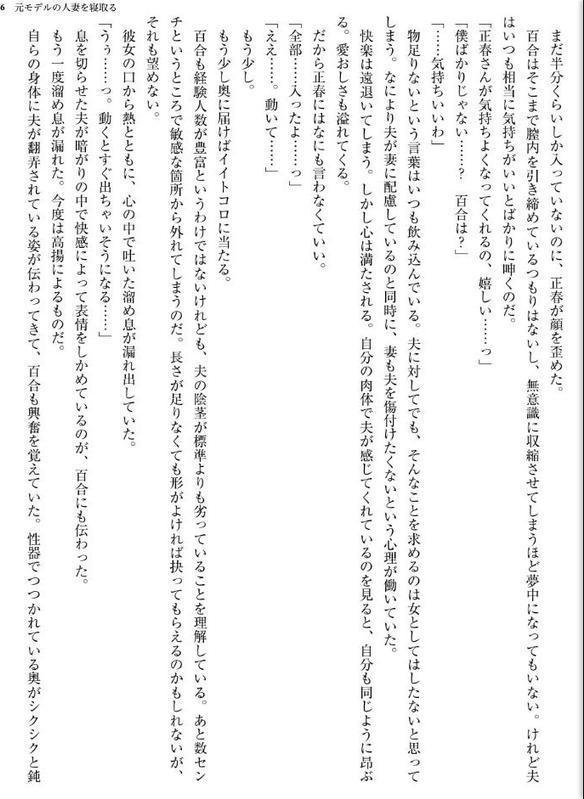 6　元モデルの人妻を寝取る
　まだ半分くらいしか入っていないのに、正春が顔を歪めた。
　百合はそこまで膣内を引き締めているつもりはないし、無意識に収縮させてしまうほど夢中になってもいない。けれど夫
はいつも相当に気持ちがいいとばかりに呻くのだ。
「正春さんが気持ちよくなってくれるの、嬉しい……っ」
「僕ばかりじゃない……？　百合は？」
「……気持ちいいわ」
　物足りないという言葉はいつも飲み込んでいる。夫に対してでも、そんなことを求めるのは女としてはしたないと思って
しまう。なにより夫が妻に配慮しているのと同時に、妻も夫を傷付けたくないという心理が働いていた。
　快楽は遠退いてしまう。しかし心は満たされる。自分の肉体で夫が感じてくれているのを見ると、自分も同じように昂ぶ
る。愛おしさも溢れてくる。
　だから正春にはなにも言わなくていい。
「全部……入ったよ……っ」
「ええ……。動いて……」
　もう少し。
　もう少し奥に届けばイイトコロに当たる。
　百合も経験人数が豊富というわけではないけれども、夫の陰茎が標準よりも劣っていることを理解している。あと数セン
チというところで敏感な箇所から外れてしまうのだ。長さが足りなくても形がよければ抉ってもらえるのかもしれないが、
それも望めない。
　彼女の口から熱とともに、心の中で吐いた溜め息が漏れ出していた。
「うぅ……っ。動くとすぐ出ちゃいそうになる……」
　息を切らせた夫が暗がりの中で快感によって表情をしかめているのが、百合にも伝わった。
　もう一度溜め息が漏れた。今度は高揚によるものだ。
　自らの身体に夫が翻弄されている姿が伝わってきて、百合も興奮を覚えていた。性器でつつかれている奥がシクシクと鈍